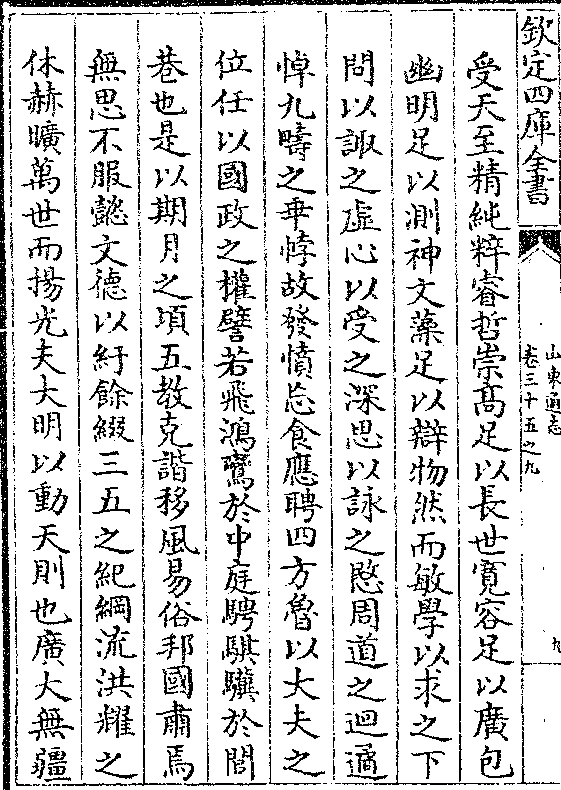 欽定四庫全書
山東通志
卷三十五之九
九
受天至精純粹睿哲崇髙足以長世寛容足以廣包
幽明足以測神文藻足以辯物然而敏學以求之下
問以諏之虛心以受之深思以詠之愍周道之迴遹
悼九疇之乖悖故發憤忘食應聘四方魯以大夫之
位任以國政之權譬若飛鴻鸞於中庭騁騏驥於閭
巷也是以期月之頃五教克諧移風易俗邦國肅焉
無思不服懿文德以紆餘綴三五之紀綱流洪耀之
休赫曠萬世而揚光夫大明以動天則也廣大無疆